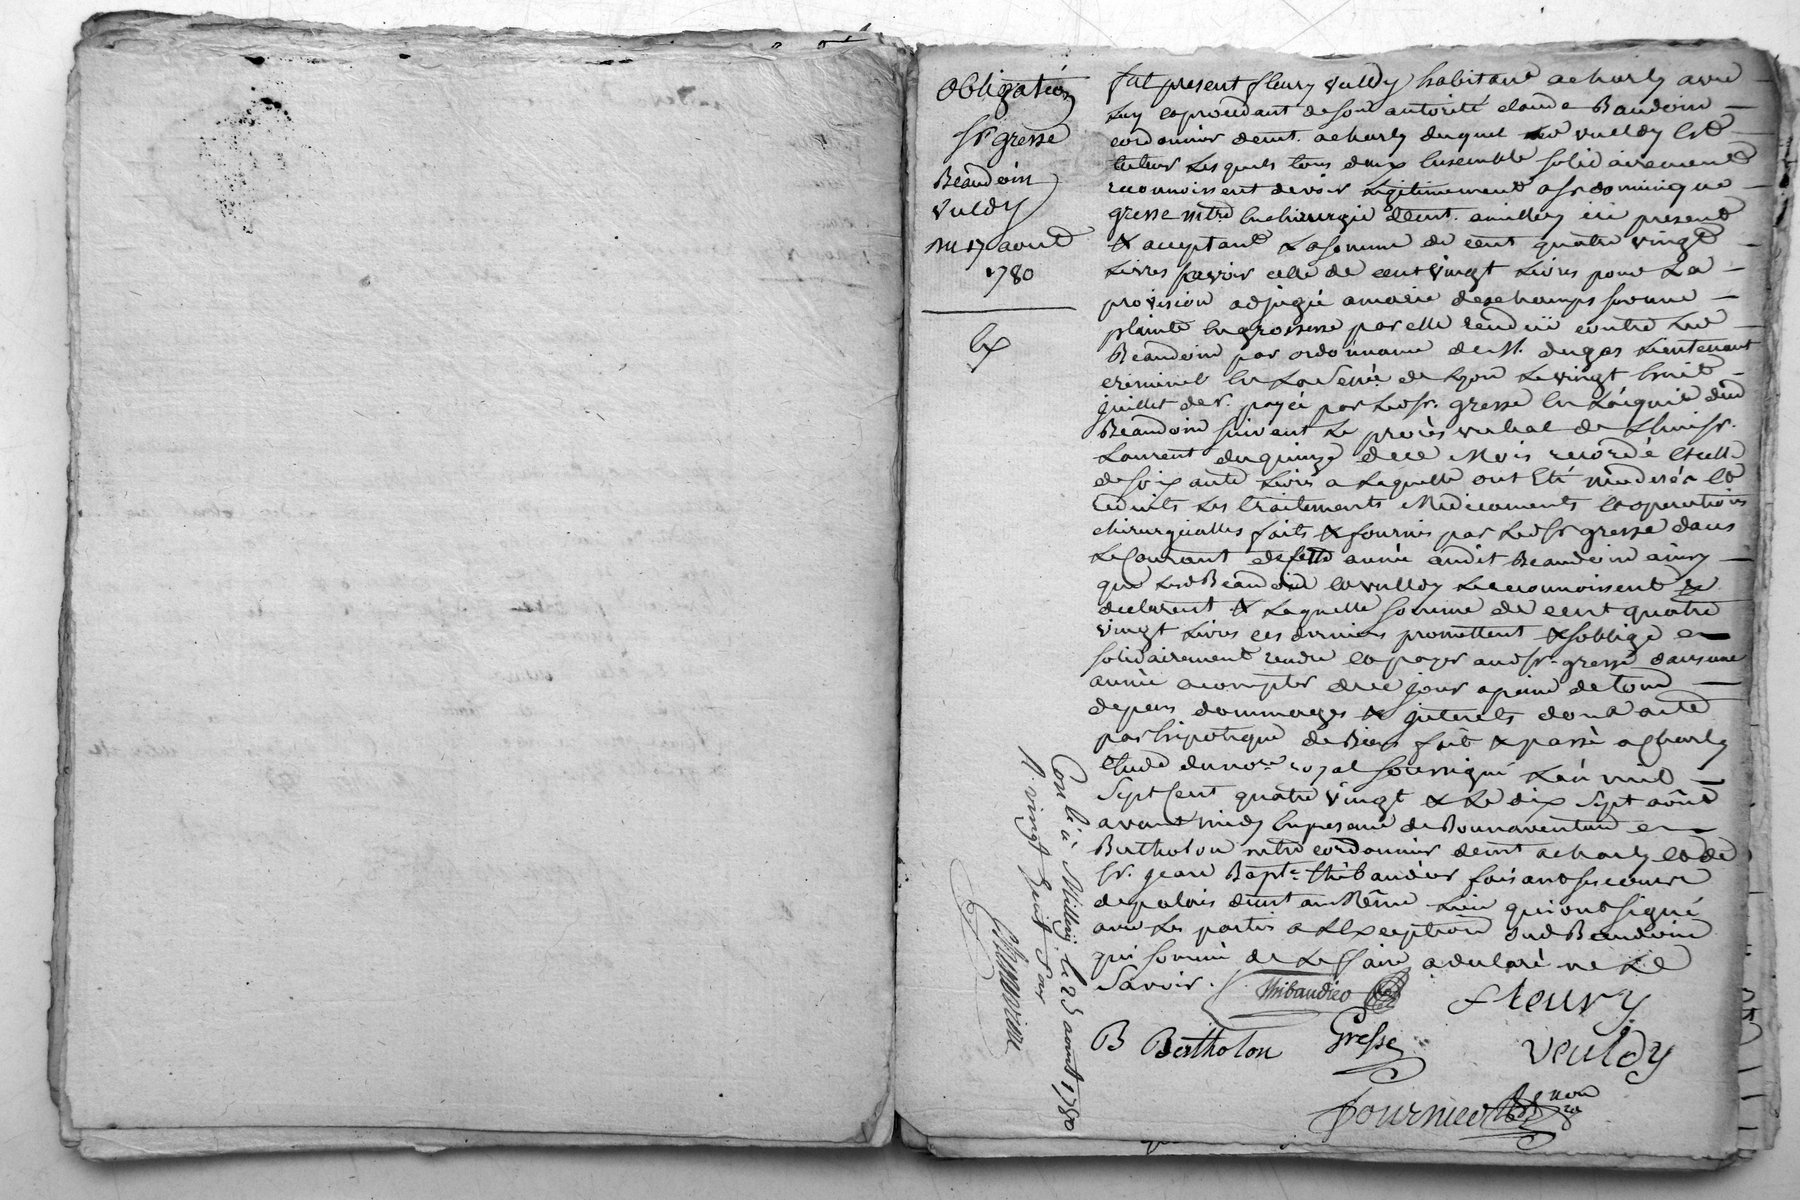 obligation
Sr gresse
Beaudoin
vuldy
du 17 aoust
1780
Ex
fut present fleury vuldy habitant a charly avec
luy et procedant de son autorité claude Baudoin
cordonnier demt. a charly duquel led vulldy est
tuteur lesquels tous deux ensemble solidairement
reconnoissent devoir legitimement a sr dominique
gresse mtre en chirurgie demt. a millery ici present
& acceptant la somme de cent quatre vingt
livres savoir celle de cent vingt livres pour la
provision adjugée a marie deschamps sur une
plainte en grossesse par elle rendue contre led
Beaudoin par ordonnance de M. dugas Lieutenant
criminel en la senée de Lyon le vingt huit
juillet der. payée par led sr. gresse en l'acquit dud
Beaudoin suivant le procès verbal de l'huissr.
Laurent du quinze de ce Mois recordé et celle
de soixante livres a laquelle ont été modérés et
reduits les traitements Medicaments et operations
chirurgicalles faits & fournis par led sr gresse dans
le Courant de cette année audit Beaudoin ainsy
que lesd Beaudoin et vulldy le reconnoissent &
declarent & laquelle somme de cent quatre
vingt livres ces derniers promettent & s'oblige
solidairement rendre et payer aud sr. gresse dans une
année a compter de ce jour a peine de tous
depens dommages & interets dont acte
par hipoteque de Biens fait & passé a Charly
etude du nore royal soussigné L'an mil
Sept Cent quatre vingt & Le dix sept août
avant midy en presence de Bonnaventure
Bertholon mtre cordonnier demt a charly et de
sr. jean Bapte. thibaudier faisant ses cours
de palais demt au Même Lieu qui ont signé
avec les parties a L'Exception dud Beaudoin
qui sommé de Le faire a declaré ne le
Savoir.
Thibaudier
fleury
B Bertholon
Gresse
veuldy
fournier
Conlé à Millery le 25 aoust 1780
R. vingt huit sous